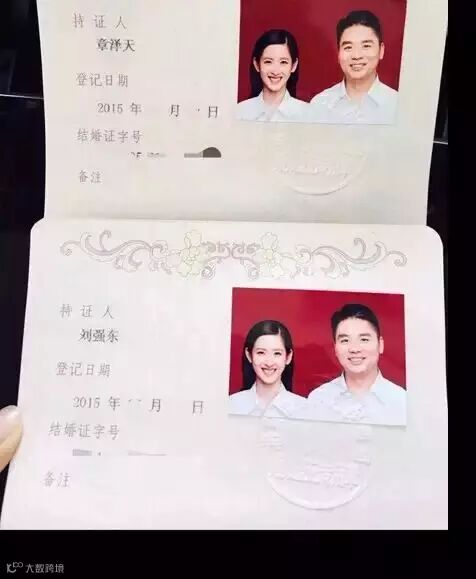 持证人
章泽天
登记日期
2015 年 月 日
结婚证字号
备注
持证人
刘强东
登记日期
2015 年 月 日
结婚证字号
备注
大数跨境